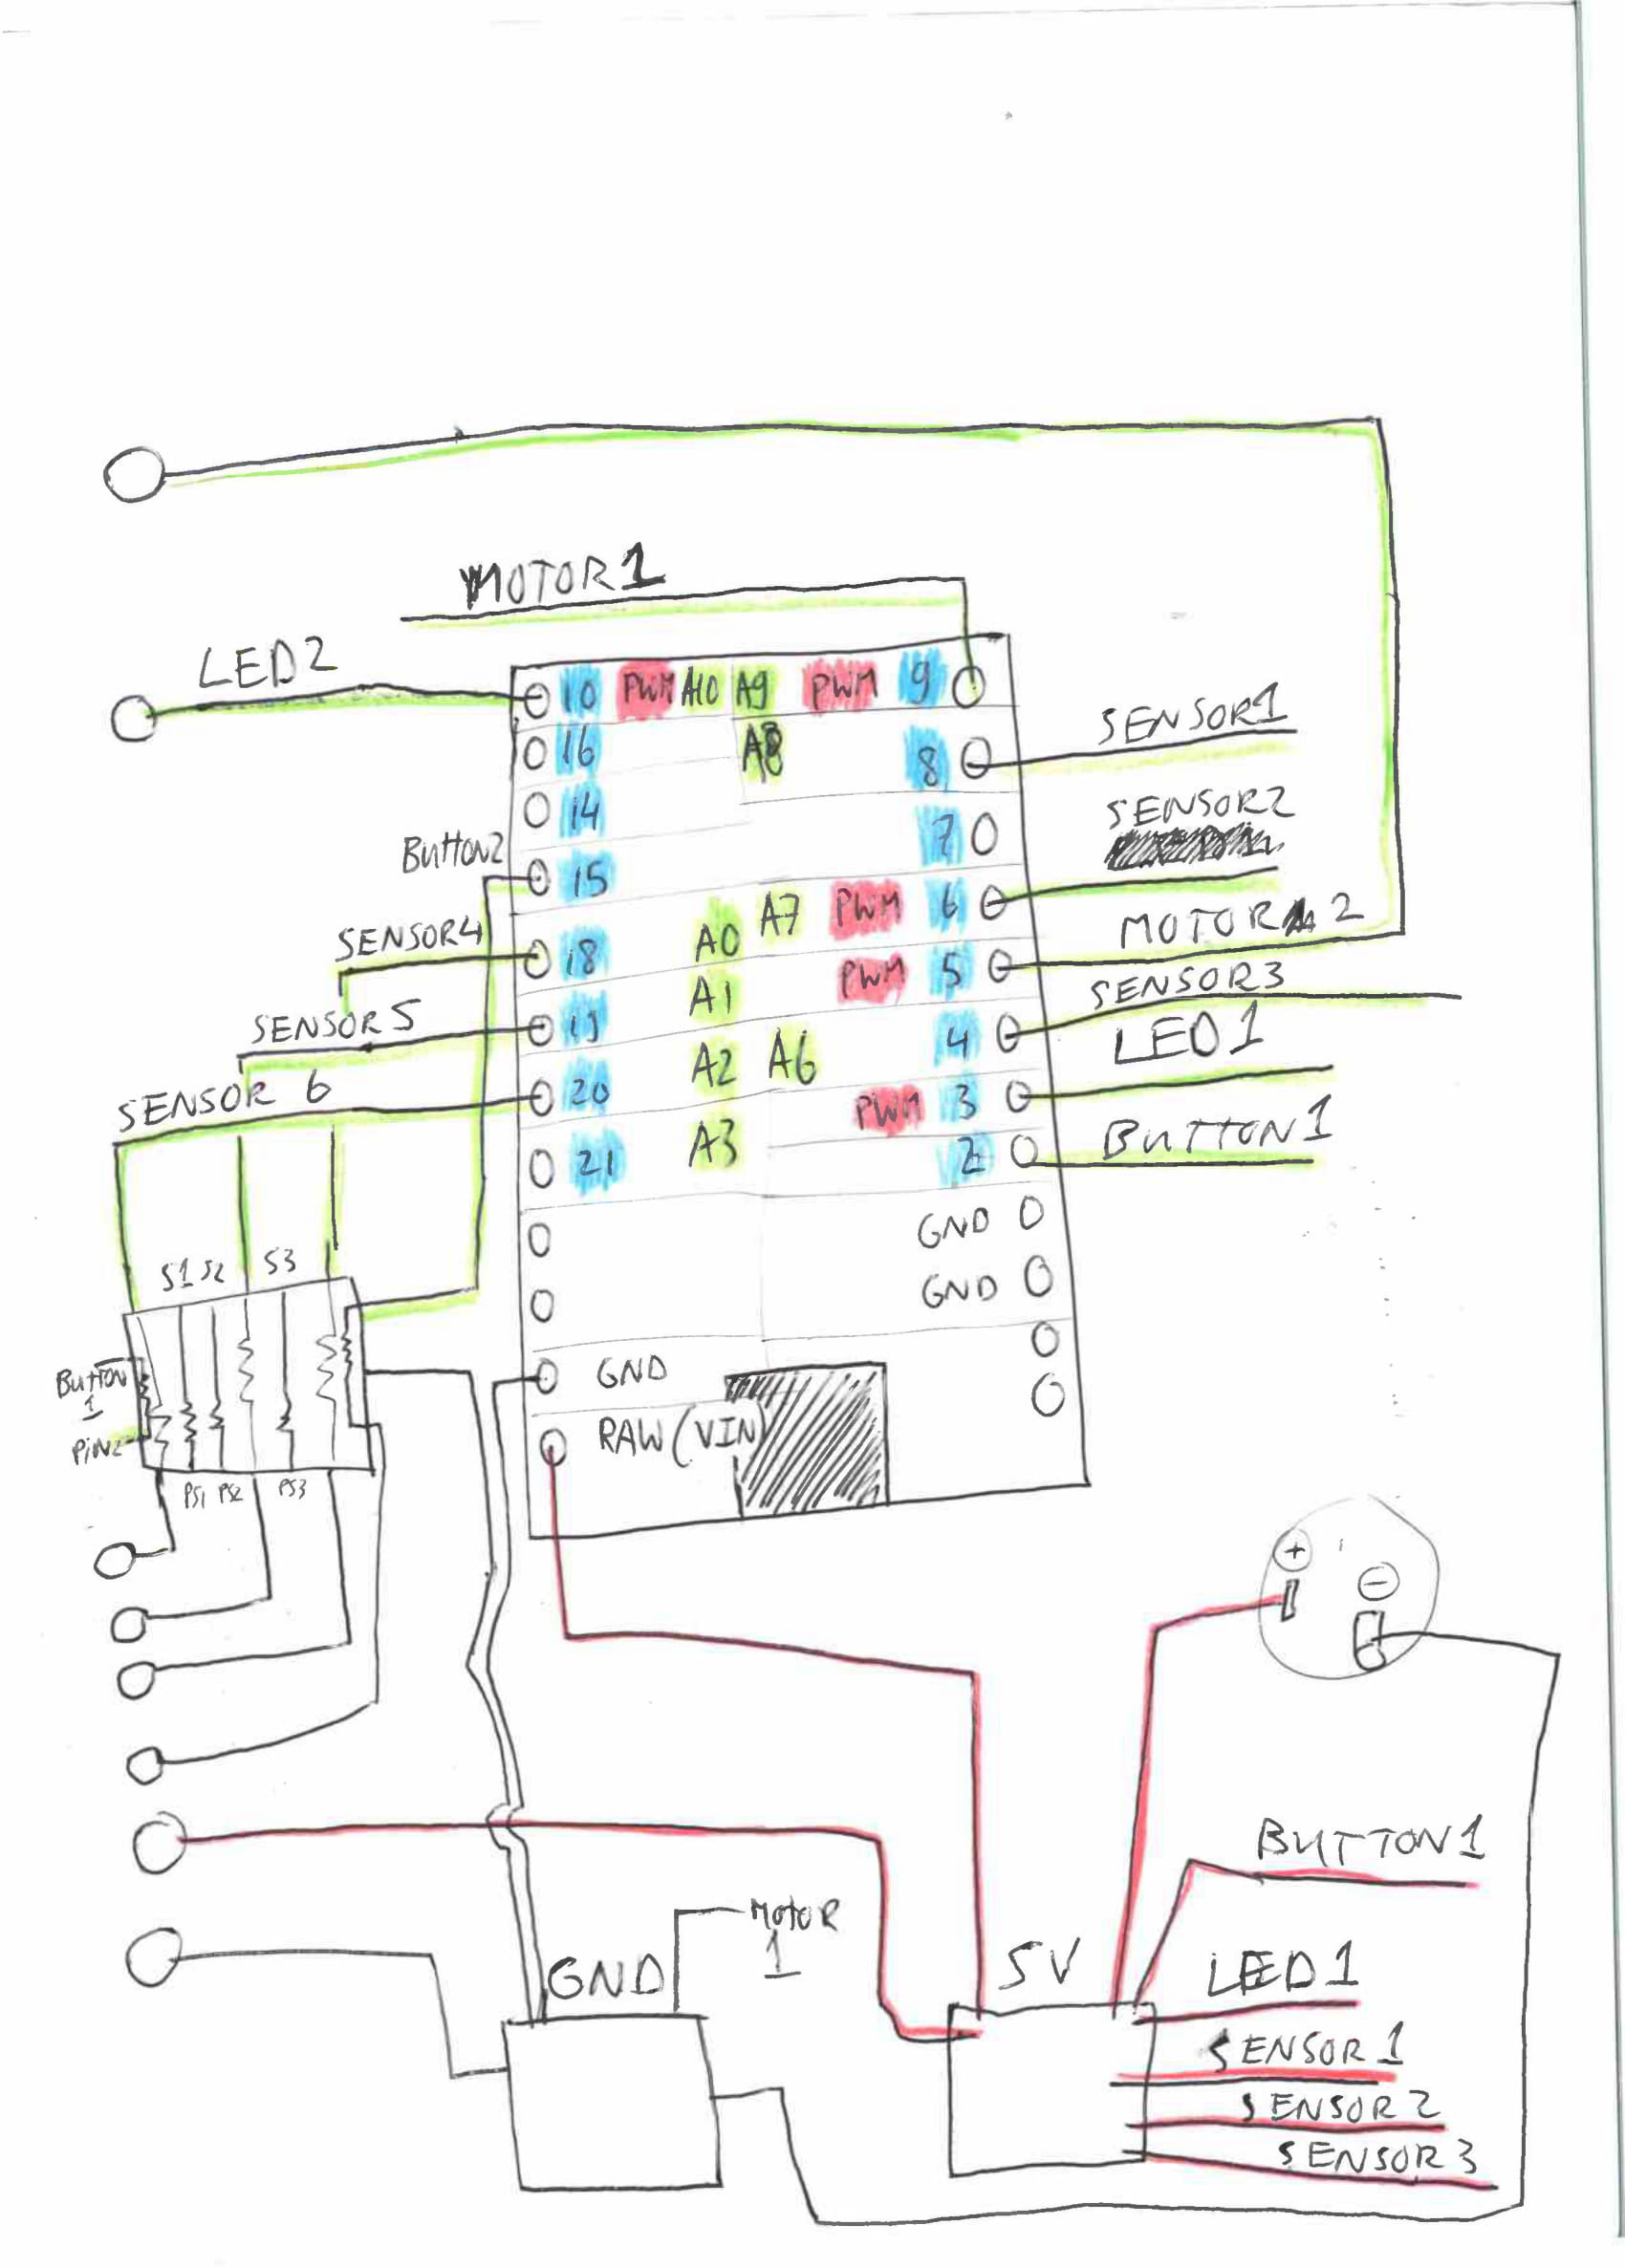 MOTOR1
LED2
10 PWM A10 A9 PWM 9
16 A8 8
SENSOR1
14 7
SENSOR2
Button2
15 A7 PWM 6
MOTOR 2
SENSOR4
18 A0 PWM 5
SENSOR3
SENSOR5
19 A1 4
LED1
SENSOR 6
20 A2 A6 PWM 3
BUTTON1
21 A3 2
GND
GND
S1 S2 S3
Button
1
PiN2
GND
RAW (VIN)
PS1 PS2 PS3
+
-
BUTTON1
MOTOR
1
GND
5V
LED1
SENSOR1
SENSOR2
SENSOR3